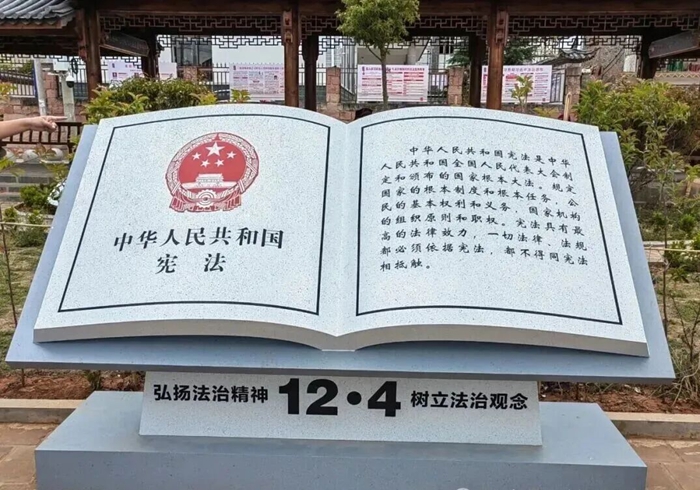 中华人民共和国
宪法
中华人民共和国宪法是中华
人民共和国全国人民代表大会制
定和颁布的国家根本大法。规定
国家的根本制度和根本任务、公
民的基本权利和义务、国家机构
的组织原则和职权。宪法具有最
高的法律效力，一切法律、法规
都必须依据宪法，都不得同宪法
相抵触。
弘扬法治精神 12·4 树立法治观念